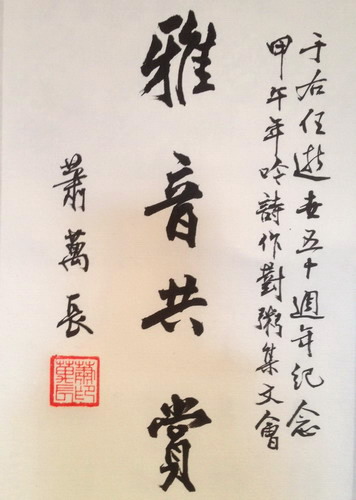 于右任逝世五十週年紀念
甲午年吟詩作對粥集文會
雅音共賞
蕭萬長
蕭印
萬長